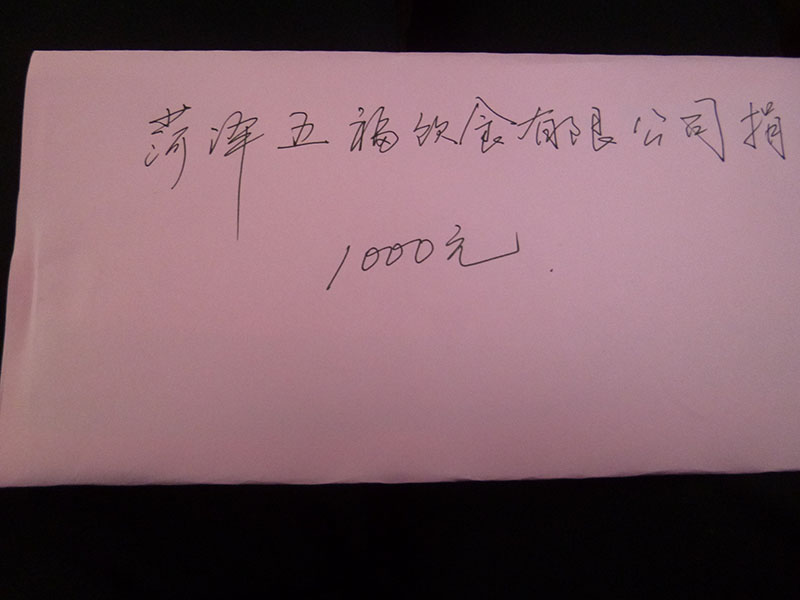 菏泽五福饮食有限公司捐
1000元.